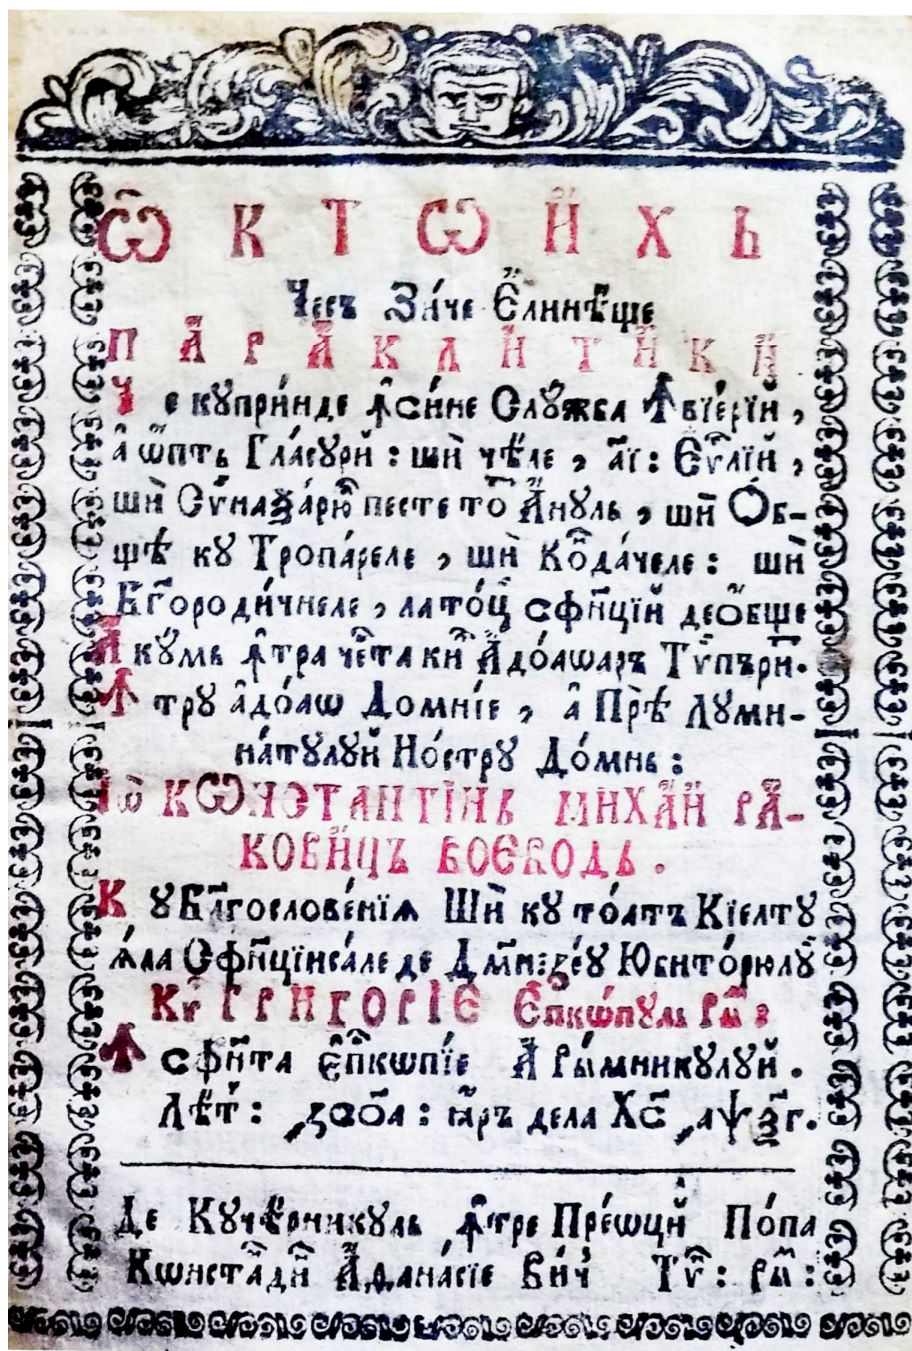 Ѡ҆КТѠИ҆ХЬ
Чесъ Зи́че Є҆лине́ѱе
ПА҆РА҆КЛИ҆ТИ҆КИ҆
Че купри́нде ꙟ҆си́не Слу́жба Ꙟ҆вїе́рїй,
а҆ ѡ҆пть Гла́сурй : шѝ чѣ́ле , а҃і : Є҆ѵⷢ҇лїй ,
шѝ Сѵ́наѯа́рюⷧ песте тоⷮ А҆нуль , шѝ О҆́б-
щѣ ку Тропа́реле , шѝ Коⷩ҇да́челе : шѝ
Бг҃ороди́чиеле , ла то́цй сфи҃нцїй део́бще
А҆кумь ꙟ҆тра че́ста кѝⷫ А҆до́аѡаръ Тѵпъри́ⷮ.
Ꙟ҆тру а҆до́аѡ Домні́е , а҆ Прѣ́ Луми-
на́тулуй Но́стру До́мнь :
І҆ѡ҆ КѠНСТАНТІ́НЬ МИХА́Й РА́-
КОВИ҆ЦЪ ВОЄВОДЬ .
Ку Бл҃гослове́нїѧ Шѝ ку то́атъ Кїелту
ѧ́ла Сфи҃нцїиса́ле де Дм҃незе́у Юбито́рюлуⷤ
Кѵⷬ҇ ГРИГОРІЄ Є҆пⷭ҇кѡ́пуль Рыⷨ :
Ꙟ҆ сфн҃та є҆пⷭ҇кѡпі́е А҆ Ры́мникулуй .
Лѣ́ⷮ : ҂зсо҃а : і҆а́ръ дела Хс҃ ҂аѱѯ҃г.
Де Кучѣ́рникуль ꙟ҆тре Пре́ѡцй По́па
Кѡнста́ⷩ҇дѝⷩ А҆ѳана́сїе Ви́ч Тѵⷫ : рыⷨ :